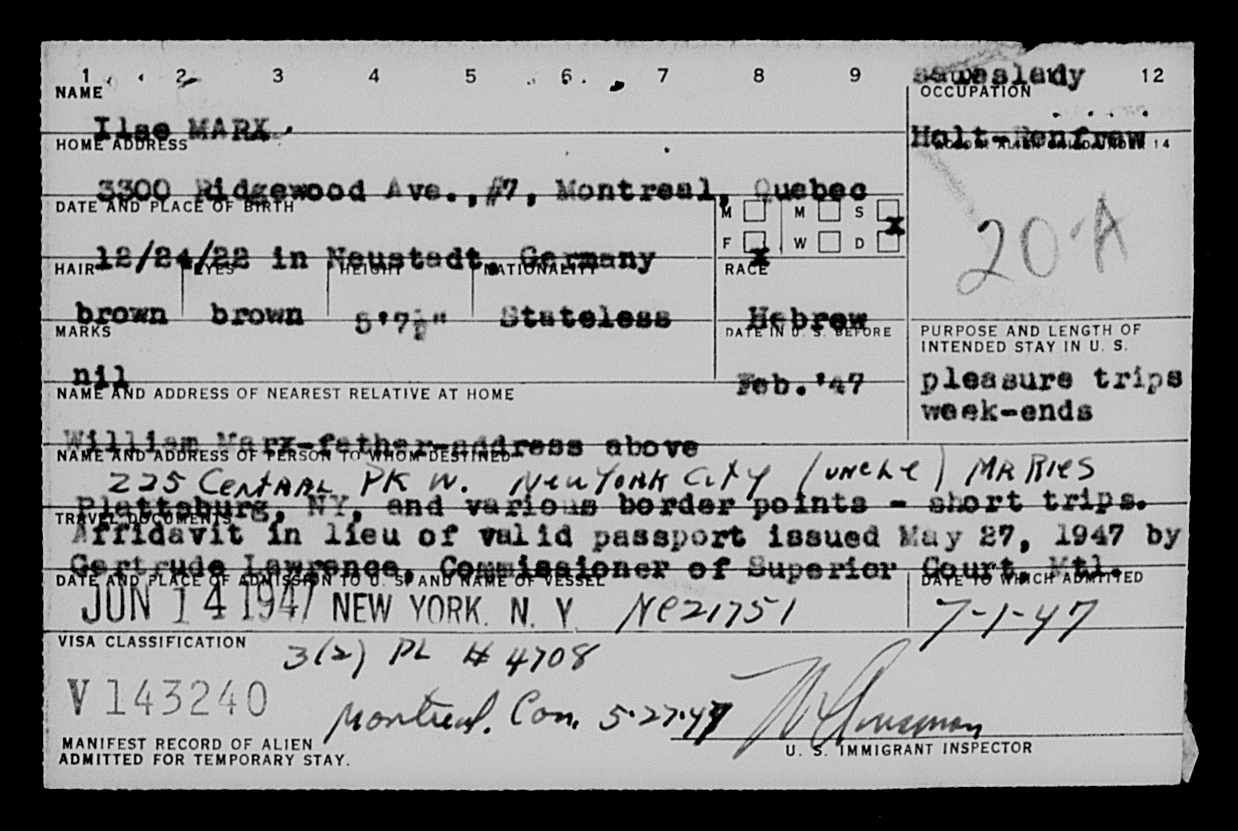 1 2 3 4 5 6 7 8 9 12
NAME
Ilse MARX.
saleslady
OCCUPATION
Holt-Renfrew
14
HOME ADDRESS
3300 Ridgewood Ave.,#7, Montreal, Quebec
DATE AND PLACE OF BIRTH
12/24/22 in Neustadt, Germany
M M S
F W D
X
X
20-A
HAIR EYES HEIGHT NATIONALITY RACE
brown brown 5'7½" Stateless Hebrew
MARKS
nil
DATE IN U. S. BEFORE
Feb.'47
PURPOSE AND LENGTH OF
INTENDED STAY IN U. S.
pleasure trips
week-ends
NAME AND ADDRESS OF NEAREST RELATIVE AT HOME
William Marx-father-address above
NAME AND ADDRESS OF PERSON TO WHOM DESTINED
225 CENTRAL PK W. NEW YORK CITY (UNCLE) MR RIES
Plattsburg, NY, and various border points - short trips.
TRAVEL DOCUMENTS
Affidavit in lieu of valid passport issued May 27, 1947 by
Gertrude Lawrence, Commissioner of Superior Court, Mtl.
DATE AND PLACE OF ADMISSION TO U. S. AND NAME OF VESSEL
DATE TO WHICH ADMITTED
JUN 14 1947 NEW YORK. N. Y. NC21751 7-1-47
VISA CLASSIFICATION
3(2) PL # 4708
V 143240
Montreal. Can. 5-27-47
MANIFEST RECORD OF ALIEN
ADMITTED FOR TEMPORARY STAY.
U. S. IMMIGRANT INSPECTOR